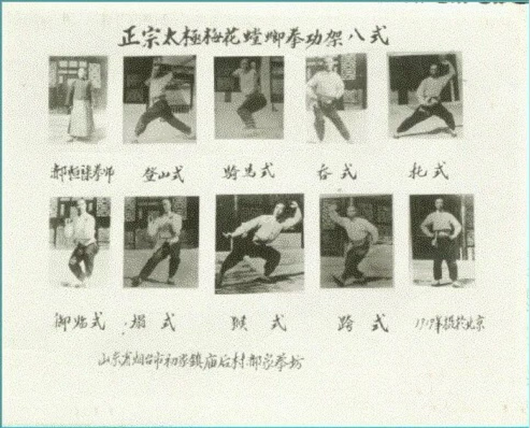 正宗太極梅花螳螂拳功架八式
郝恒祿拳师 登山式 骑馬式 吞式 扥式
御
式 塌式 猴式 跨式 1919年摄於北京
山东省烟台市初家鎮庙后村郝家拳坊